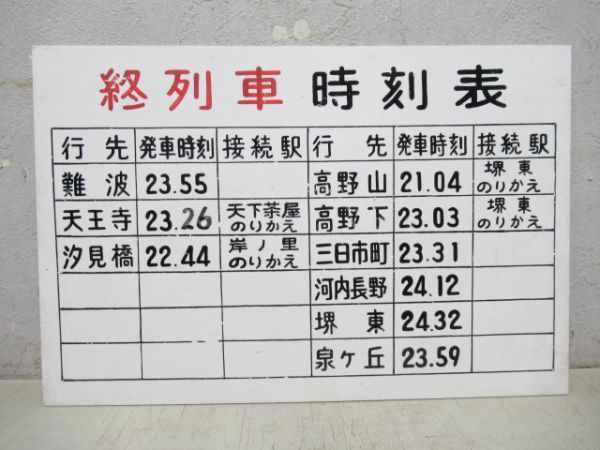 終列車時刻表
行先 発車時刻 接続駅 行先 発車時刻 接続駅
難波 23.55 高野山 21.04 堺東のりかえ
天王寺 23.26 天下茶屋のりかえ 高野下 23.03 堺東のりかえ
汐見橋 22.44 岸ノ里のりかえ 三日市町 23.31
河内長野 24.12
堺東 24.32
泉ヶ丘 23.59